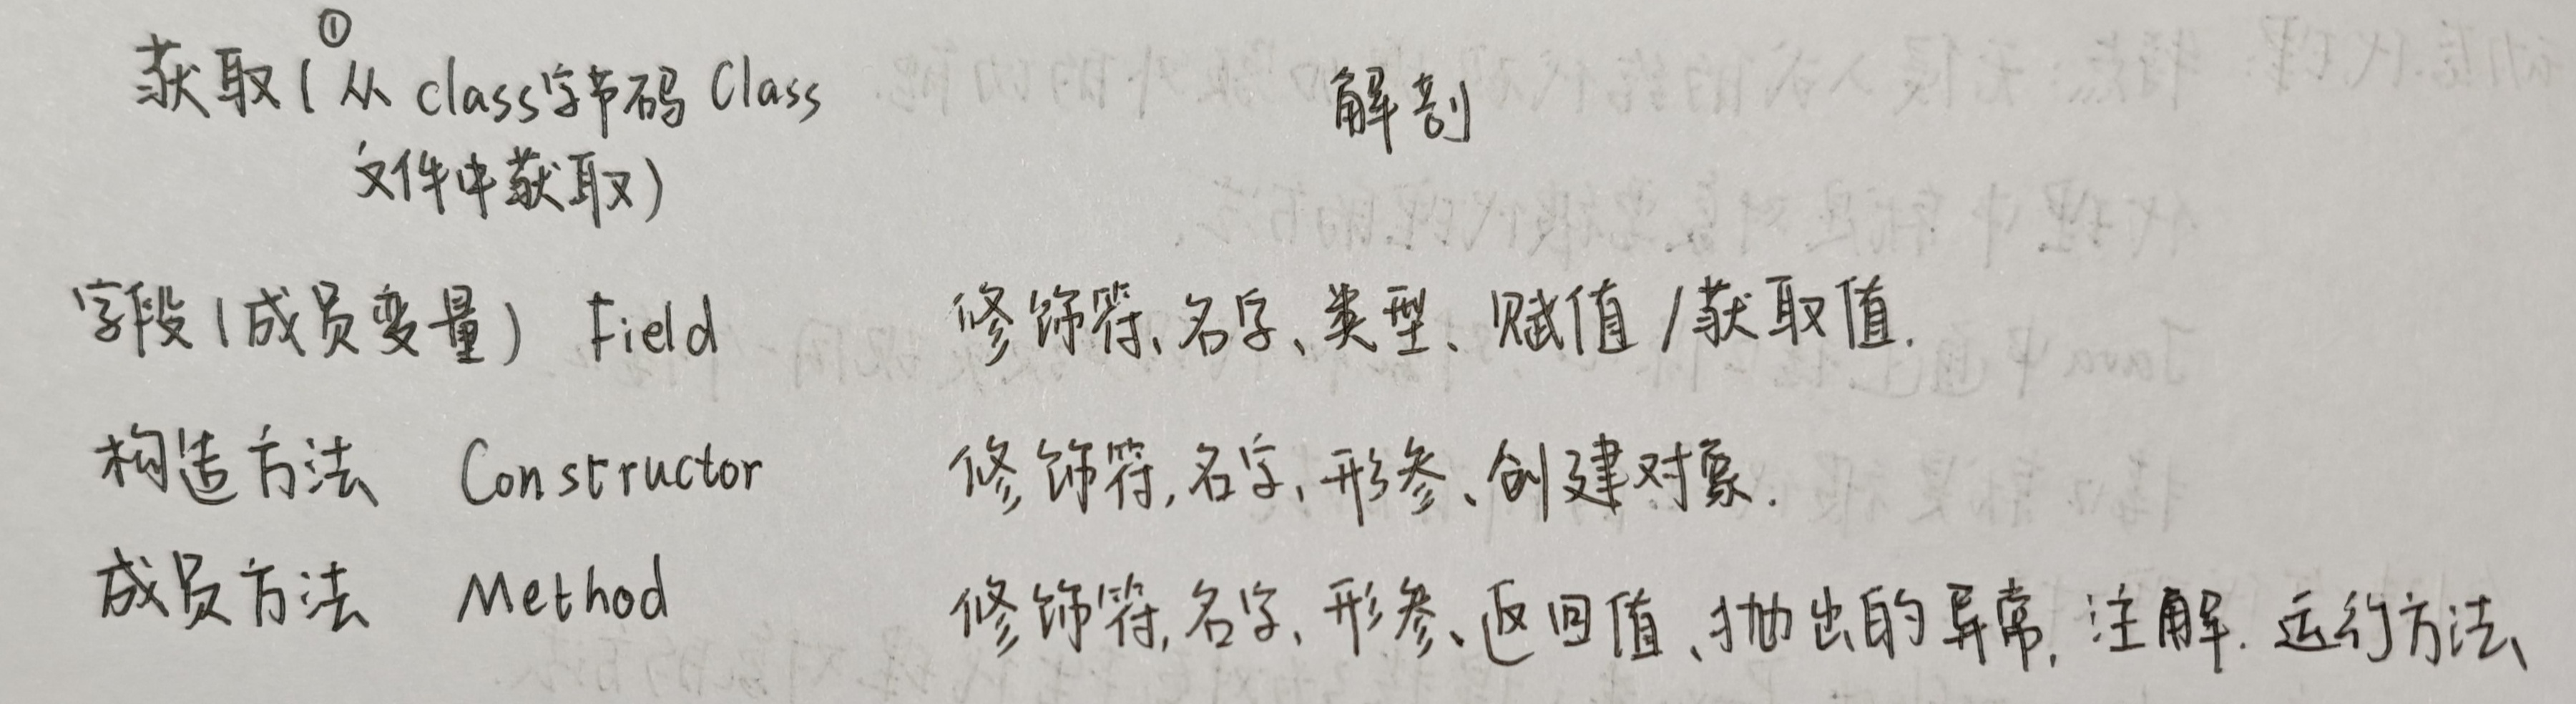 ①
获取(从class字节码 Class 解剖
文件中获取)
字段(成员变量) Field 修饰符、名字、类型、赋值/获取值.
构造方法 Constructor 修饰符,名字,形参、创建对象.
成员方法 Method 修饰符,名字、形参、返回值、抛出的异常,注解.运行方法、